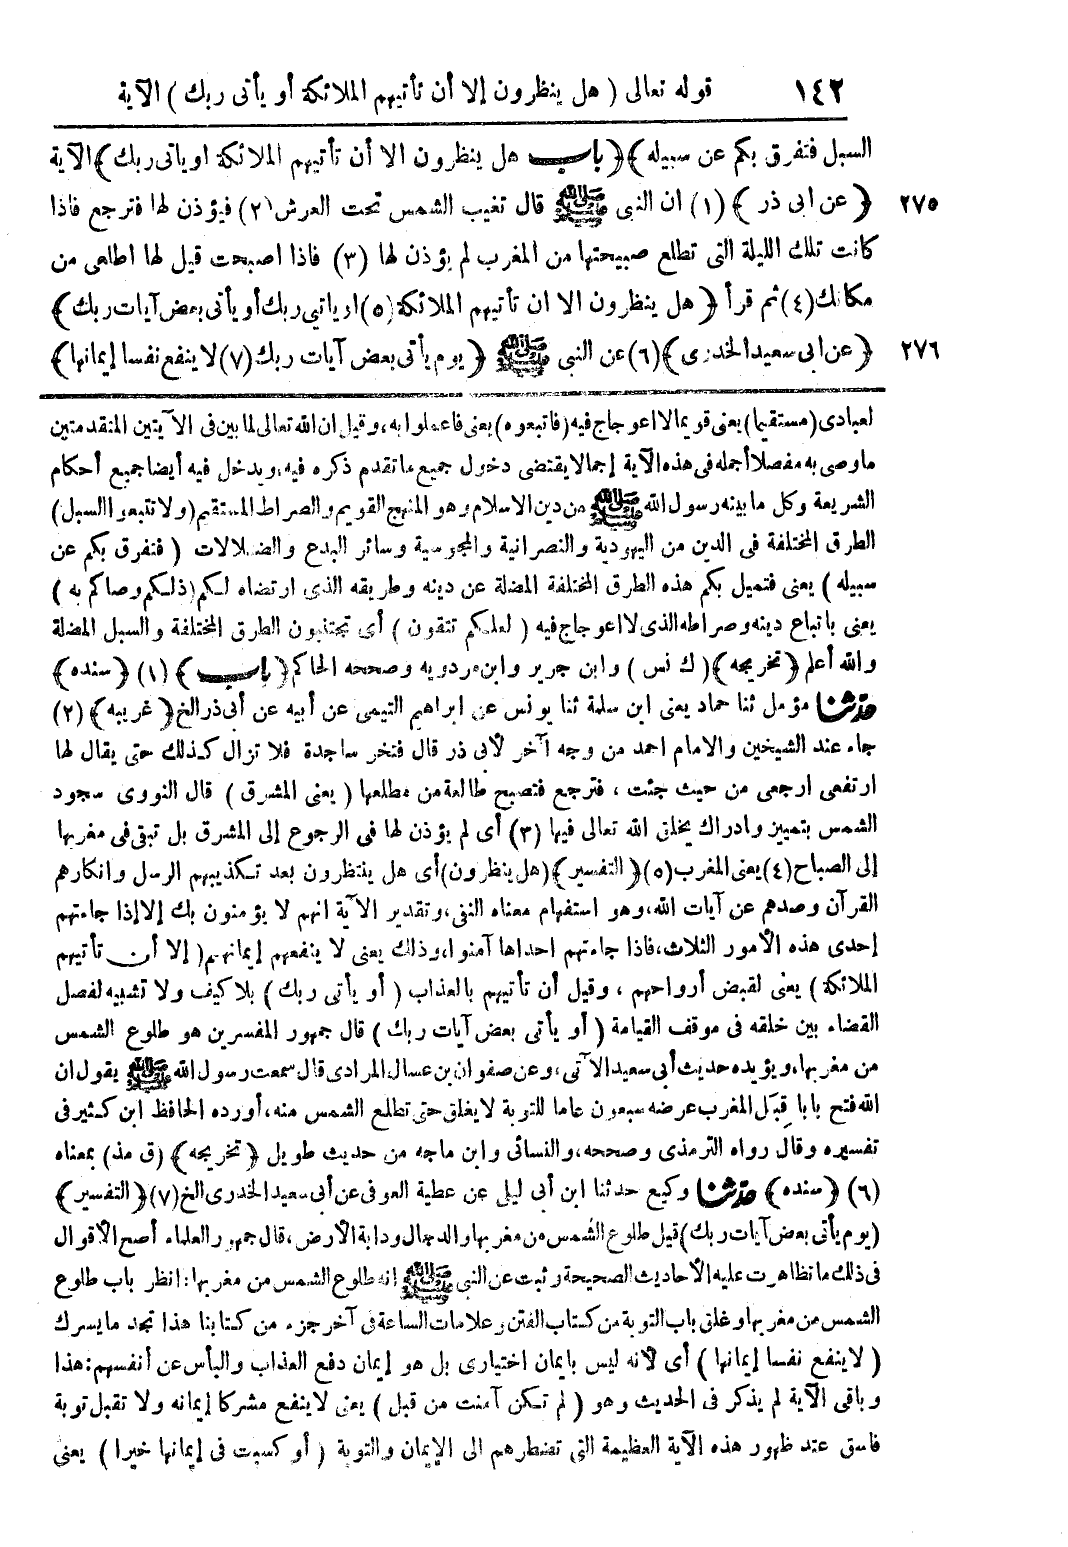 ١٤٢ قوله تعالى ( هل ينظرون إلا أن تأتيهم الملائكة أو يأتى ربك ) الآية
السبل فتفرق بكم عن سبيله ﴾ ﴿ باب هل ينظرون الا أن تأتيهم الملائكة اوياتى ربك ﴾ الآية
٢٧٥ ﴿ عن ابى ذر ﴾ (١) ان النبى ﷺ قال تغيب الشمس تحت العرش (٢) فيؤذن لها فترجع فاذا
كانت تلك الليلة التى تطلع صبيحتها من المغرب لم يؤذن لها (٣) فاذا اصبحت قيل لها اطلعى من
مكانك (٤) ثم قرأ ﴿ هل ينظرون الا ان تأتيهم الملائكة (٥) او ياتي ربك أو يأتى بعض آيات ربك ﴾
٢٧٦ ﴿ عن ابى سعيد الخدرى ﴾ (٦) عن النبى ﷺ ﴿ يوم يأتى بعض آيات ربك (٧) لا ينفع نفسا إيمانها ﴾
لعبادى (مستقيما) يعنى قويما لا اعوجاج فيه (فاتبعوه) يعنى فاعملوا به، وقيل ان الله تعالى لما بين فى الآيتين المتقدمتين
ما وصى به مفصلا أجمله فى هذه الآية إجمالا يقتضى دخول جميع ما تقدم ذكره فيه، ويدخل فيه أيضا جميع أحكام
الشريعة وكل ما بينه رسول الله ﷺ من دين الاسلام وهو المنهج القويم والصراط المستقيم (ولا تتبعوا السبل)
الطرق المختلفة فى الدين من اليهودية والنصرانية والمجوسية وسائر البدع والضلالات ( فتفرق بكم عن
سبيله ) يعنى فتميل بكم هذه الطرق المختلفة المضلة عن دينه وطريقه الذى ارتضاه لكم (ذلكم وصاكم به )
يعنى باتباع دينه وصراطه الذى لا اعوجاج فيه ( لعلكم تتقون ) أى تجتنبون الطرق المختلفة والسبل المضلة
والله أعلم ﴿ تخريجه ﴾ ( ك نس ) وابن جرير وابن مردويه وصححه الحاكم ﴿ باب ﴾ (١) ﴿ سنده ﴾
حدثنا مؤمل ثنا حماد يعنى ابن سلمة ثنا يونس عن ابراهيم التيمى عن أبيه عن أبى ذر الخ ﴿ غريبه ﴾ (٢)
جاء عند الشيخين والامام احمد من وجه آخر لأبى ذر قال فتخر ساجدة فلا تزال كذلك حتى يقال لها
ارتفعى ارجعى من حيث جئت ، فترجع فتصبح طالعة من مطلعها ( يعنى المشرق ) قال النووى سجود
الشمس بتمييز وادراك يخلق الله تعالى فيها (٣) أى لم يؤذن لها فى الرجوع إلى المشرق بل تبقى فى مغربها
إلى الصباح (٤) يعنى المغرب (٥) ﴿ التفسير ﴾ (هل ينظرون) أى هل ينتظرون بعد تكذيبهم الرسل وانكارهم
القرآن وصدهم عن آيات الله، وهو استفهام معناه النفى، وتقدير الآية انهم لا يؤمنون بك إلا إذا جاءتهم
إحدى هذه الأمور الثلاث، فاذا جاءتهم احداها آمنوا، وذلك يعنى لا ينفعهم إيمانهم ( إلا أن تأتيهم
الملائكة ) يعنى لقبض أرواحهم ، وقيل أن تأتيهم بالعذاب ( أو يأتى ربك ) بلا كيف ولا تشبيه لفصل
القضاء بين خلقه فى موقف القيامة ( أو يأتى بعض آيات ربك ) قال جمهور المفسرين هو طلوع الشمس
من مغربها، ويؤيده حديث أبى سعيد الآتى، وعن صفوان بن عسال المرادى قال سمعت رسول الله ﷺ يقول ان
الله فتح بابا قِبَل المغرب عرضه سبعون عاما للتوبة لا يغلق حتى تطلع الشمس منه، أورده الحافظ ابن كثير فى
تفسيره وقال رواه الترمذى وصححه، والنسائى وابن ماجه من حديث طويل ﴿ تخريجه ﴾ (ق مذ) بمعناه
(٦) ﴿ سنده ﴾ حدثنا وكيع حدثنا ابن أبى ليلى عن عطية العوفى عن أبى سعيد الخدرى الخ (٧) ﴿ التفسير ﴾
(يوم يأتى بعض آيات ربك) قيل طلوع الشمس من مغربها والدجال ودابة الأرض، قال جمهور العلماء أصح الأقوال
فى ذلك ما تظاهرت عليه الأحاديث الصحيحة وثبت عن النبى ﷺ إنه طلوع الشمس من مغربها: انظر باب طلوع
الشمس من مغربها وغلق باب التوبة من كتاب الفتن وعلامات الساعة فى آخر جزء من كتابنا هذا تجد ما يسرك
( لا ينفع نفسا إيمانها ) أى لأنه ليس بايمان اختيارى بل هو إيمان دفع العذاب واليأس عن أنفسهم: هذا
وباقى الآية لم يذكر فى الحديث وهو ( لم تكن آمنت من قبل ) يعنى لا ينفع مشركا إيمانه ولا تقبل توبة
فاسق عند ظهور هذه الآية العظيمة التى تضطرهم الى الإيمان والتوبة ( أو كسبت فى إيمانها خيرا ) يعنى